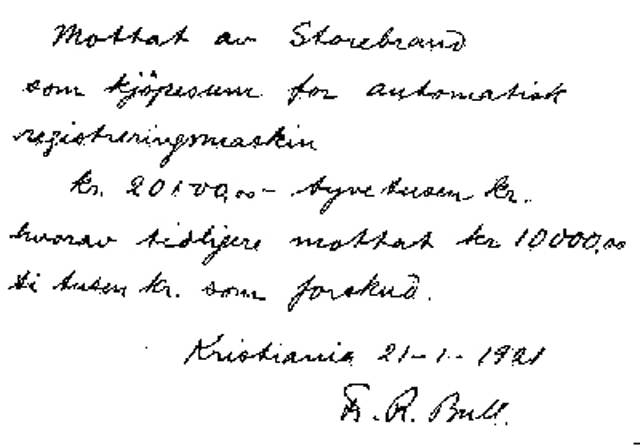 Mottat av Storebrand
som kjöpesum for automatisk
registreringsmaskin
kr. 20000,00 - tyve tusen kr.
hvorav tidligere mottat kr 10000,00
ti tusen kr. som forskud.
Kristiania 21-1-1921
Fr. R. Bull.